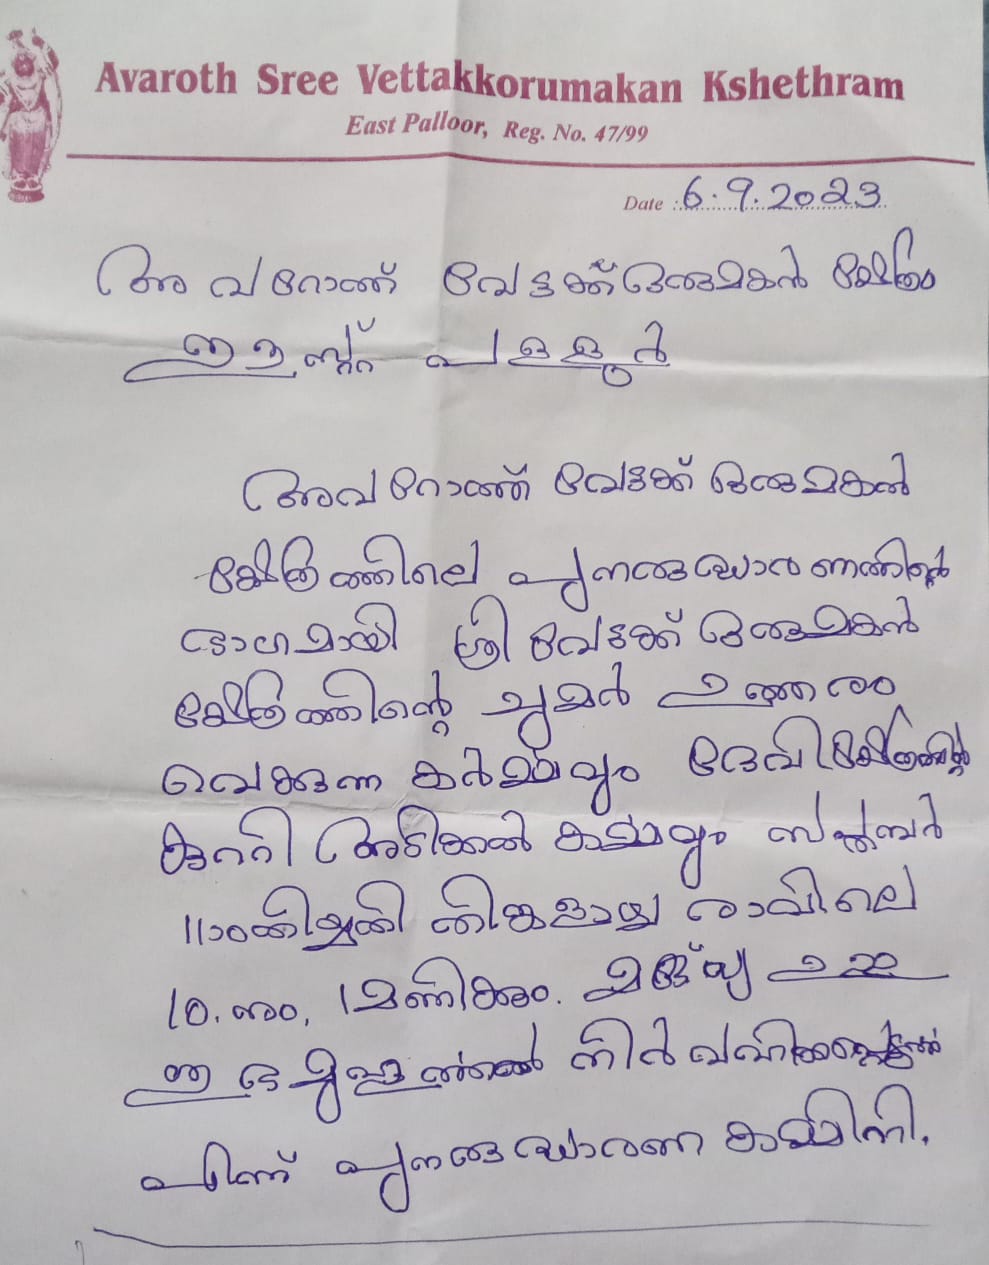 Avaroth Sree Vettakkorumakan Kshethram
East Palloor, Reg. No. 47/99
Date : 6.9.2023
അവറോത്ത് വേട്ടക്ക് ഒരുമകൻ ക്ഷേത്രം
ഈസ്റ്റ് പള്ളൂർ
അവറോത്ത് വേട്ടക്ക് ഒരുമകൻ
ക്ഷേത്രത്തിലെ പുനരുദ്ധാരണത്തിന്റെ
ഭാഗമായി ശ്രീ വേട്ടക്ക് ഒരുമകൻ
ക്ഷേത്രത്തിന്റെ ചുമർ ഉത്തരം
വെക്കുന്ന കർമ്മവും ദേവിക്ഷേത്രത്തിന്റെ
കുററി അടിക്കൽ കർമ്മവും
11ാംതിയ്യതി തിങ്കളാഴ്ച രാവിലെ
10.നും, 12മണിക്കും.
നിർവഹിക്കപ്പെടുന്നു
എന്ന് പുനരുദ്ധാരണ കമ്മിററി.